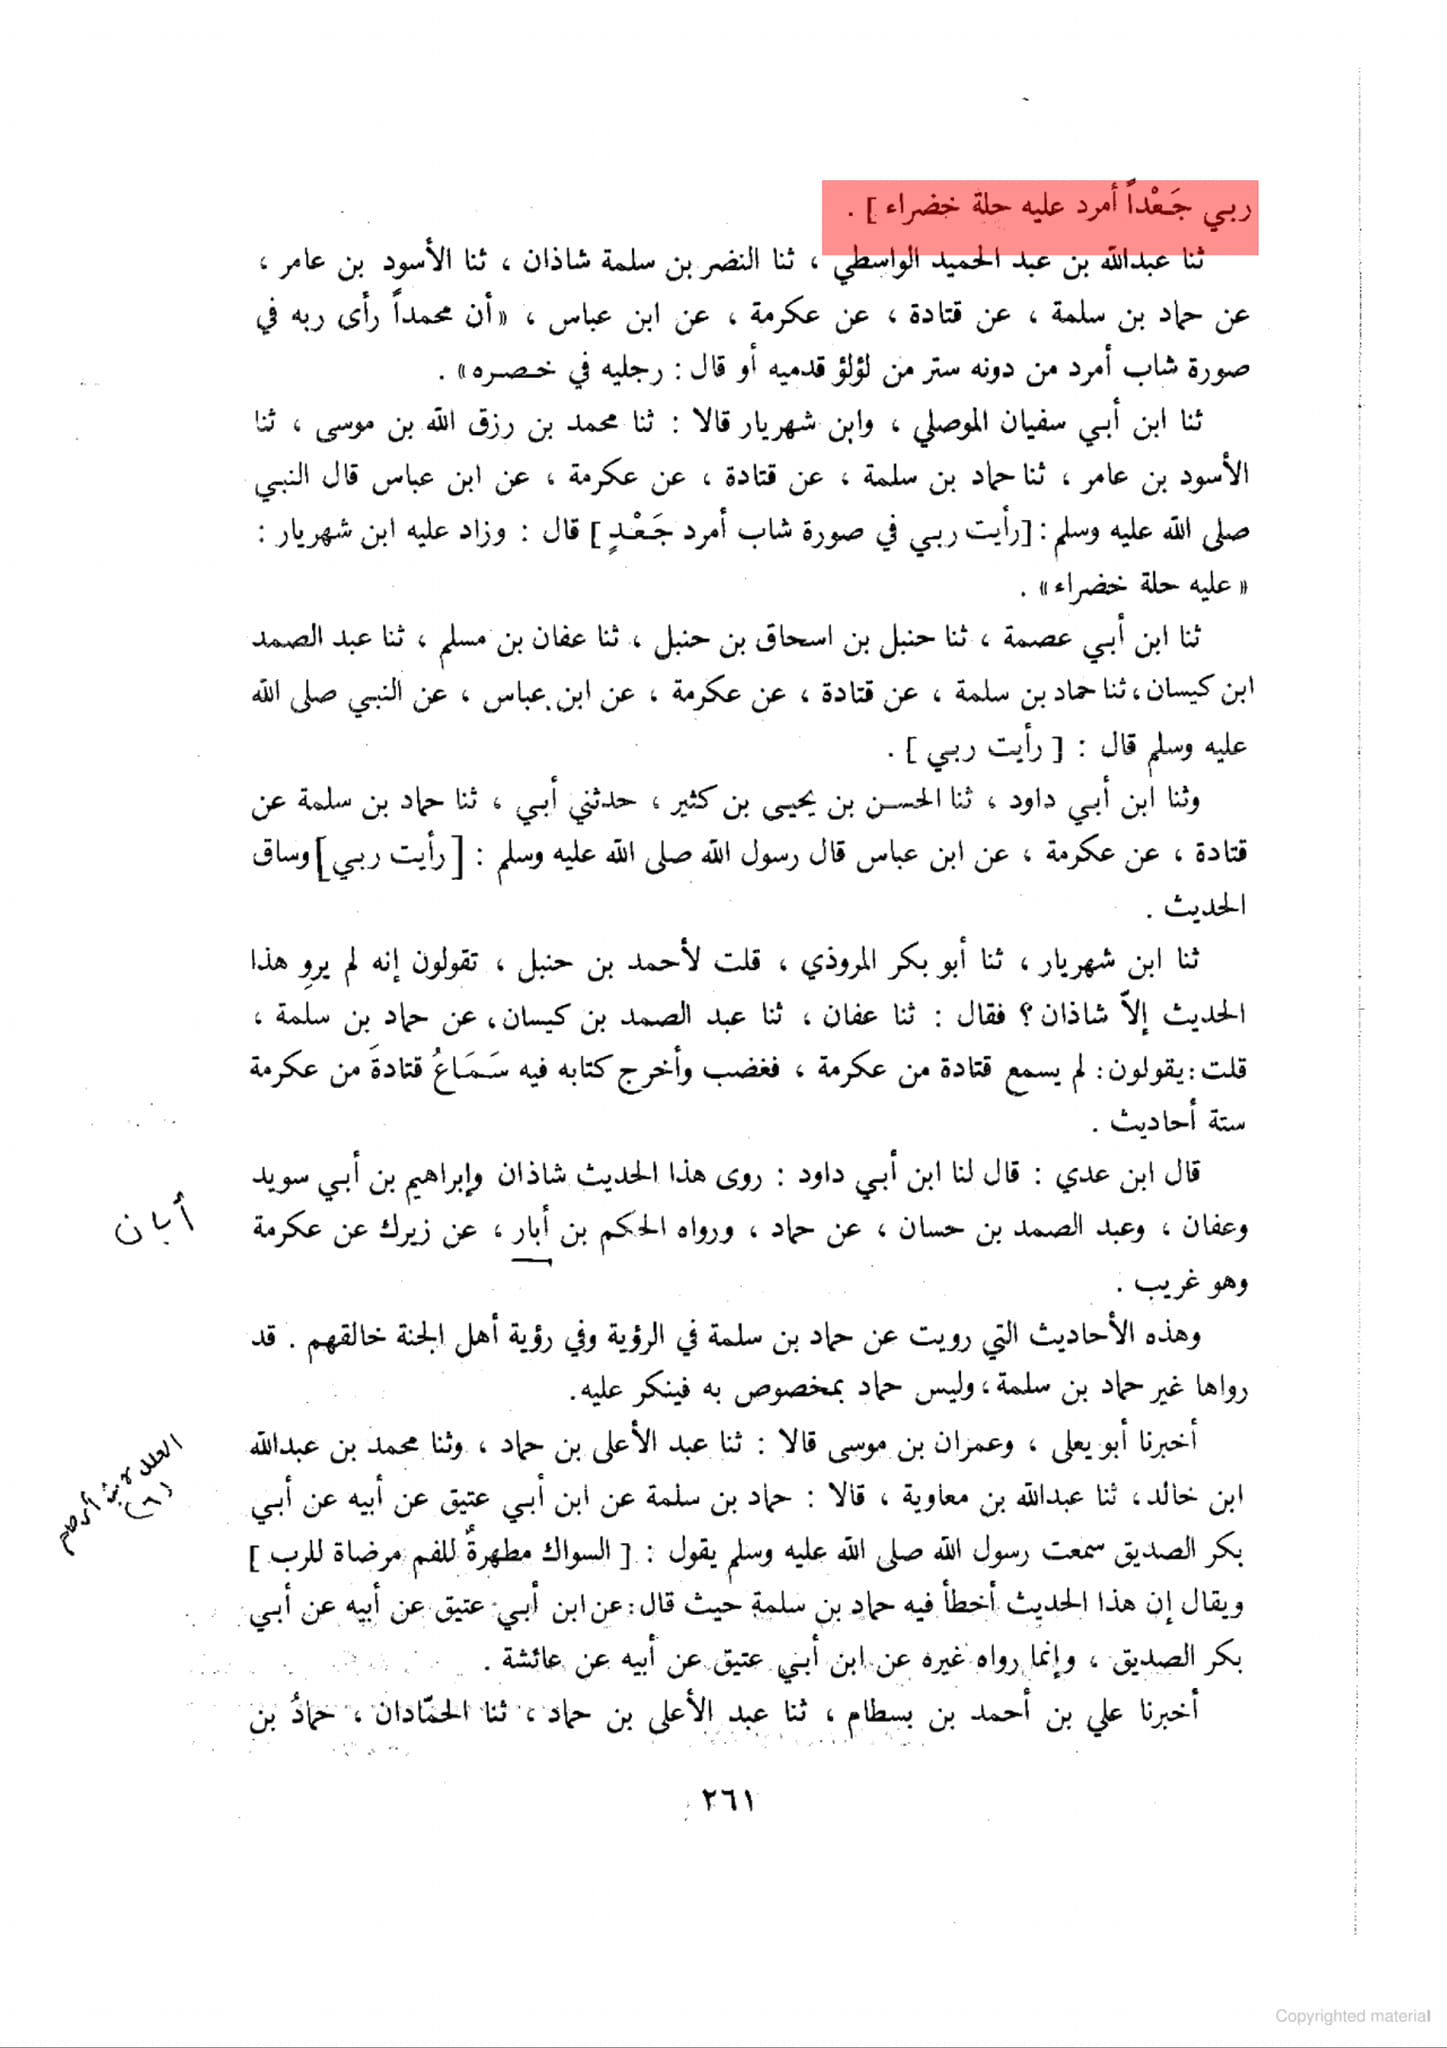 ربي جَعْداً أمرد عليه حلة خضراء ] .
ثنا عبدالله بن عبد الحميد الواسطي ، ثنا النضر بن سلمة شاذان ، ثنا الأسود بن عامر ،
عن حماد بن سلمة ، عن قتادة ، عن عكرمة ، عن ابن عباس ، «أن محمداً رأى ربه في
صورة شاب أمرد من دونه ستر من لؤلؤ قدميه أو قال : رجليه في خصره» .
ثنا ابن أبي سفيان الموصلي ، وابن شهريار قالا : ثنا محمد بن رزق الله بن موسى ، ثنا
الأسود بن عامر ، ثنا حماد بن سلمة ، عن قتادة ، عن عكرمة ، عن ابن عباس قال النبي
صلى الله عليه وسلم : [رأيت ربي في صورة شاب أمرد جَعْدٍ ] قال : وزاد عليه ابن شهريار :
« عليه حلة خضراء» .
ثنا ابن أبي عصمة ، ثنا حنبل بن اسحاق بن حنبل ، ثنا عفان بن مسلم ، ثنا عبد الصمد
ابن كيسان، ثنا حماد بن سلمة ، عن قتادة ، عن عكرمة ، عن ابن عباس ، عن النبي صلى الله
عليه وسلم قال : [ رأيت ربي ] .
وثنا ابن أبي داود ، ثنا الحسن بن يحيى بن كثير ، حدثني أبي ، ثنا حماد بن سلمة عن
قتادة ، عن عكرمة ، عن ابن عباس قال رسول الله صلى الله عليه وسلم : [ رأيت ربي ] وساق
الحديث .
ثنا ابن شهريار ، ثنا أبو بكر المروذي ، قلت لأحمد بن حنبل ، تقولون إنه لم يروِ هذا
الحديث إلاّ شاذان ؟ فقال : ثنا عفان ، ثنا عبد الصمد بن كيسان، عن حماد بن سلمة ،
قلت : يقولون : لم يسمع قتادة من عكرمة ، فغضب وأخرج كتابه فيه سَمَاعُ قتادةَ من عكرمة
ستة أحاديث .
قال ابن عدي : قال لنا ابن أبي داود : روى هذا الحديث شاذان وإبراهيم بن أبي سويد
وعفان ، وعبد الصمد بن حسان ، عن حماد ، ورواه الحكم بن أبار ، عن زيرك عن عكرمة
أبان
وهو غريب .
وهذه الأحاديث التي رويت عن حماد بن سلمة في الرؤية وفي رؤية أهل الجنة خالقهم . قد
رواها غير حماد بن سلمة ، وليس حماد بمخصوص به فينكر عليه.
أخبرنا أبو يعلى ، وعمران بن موسى قالا : ثنا عبد الأعلى بن حماد ، وثنا محمد بن عبدالله
ابن خالد، ثنا عبدالله بن معاوية ، قالا : حماد بن سلمة عن ابن أبي عتيق عن أبيه عن أبي
العلل لابن أبي حاتم
(٦)
بكر الصديق سمعت رسول الله صلى الله عليه وسلم يقول : [ السواك مطهرةٌ للفم مرضاة للرب ]
ويقال إن هذا الحديث أخطأ فيه حماد بن سلمة حيث قال : عن ابن أبي عتيق عن أبيه عن أبي
بكر الصديق ، وإنما رواه غيره عن ابن أبي عتيق عن أبيه عن عائشة .
أخبرنا علي بن أحمد بن بسطام ، ثنا عبد الأعلى بن حماد ، ثنا الحمّادان ، حمادُ بن
٢٦١
Copyrighted material